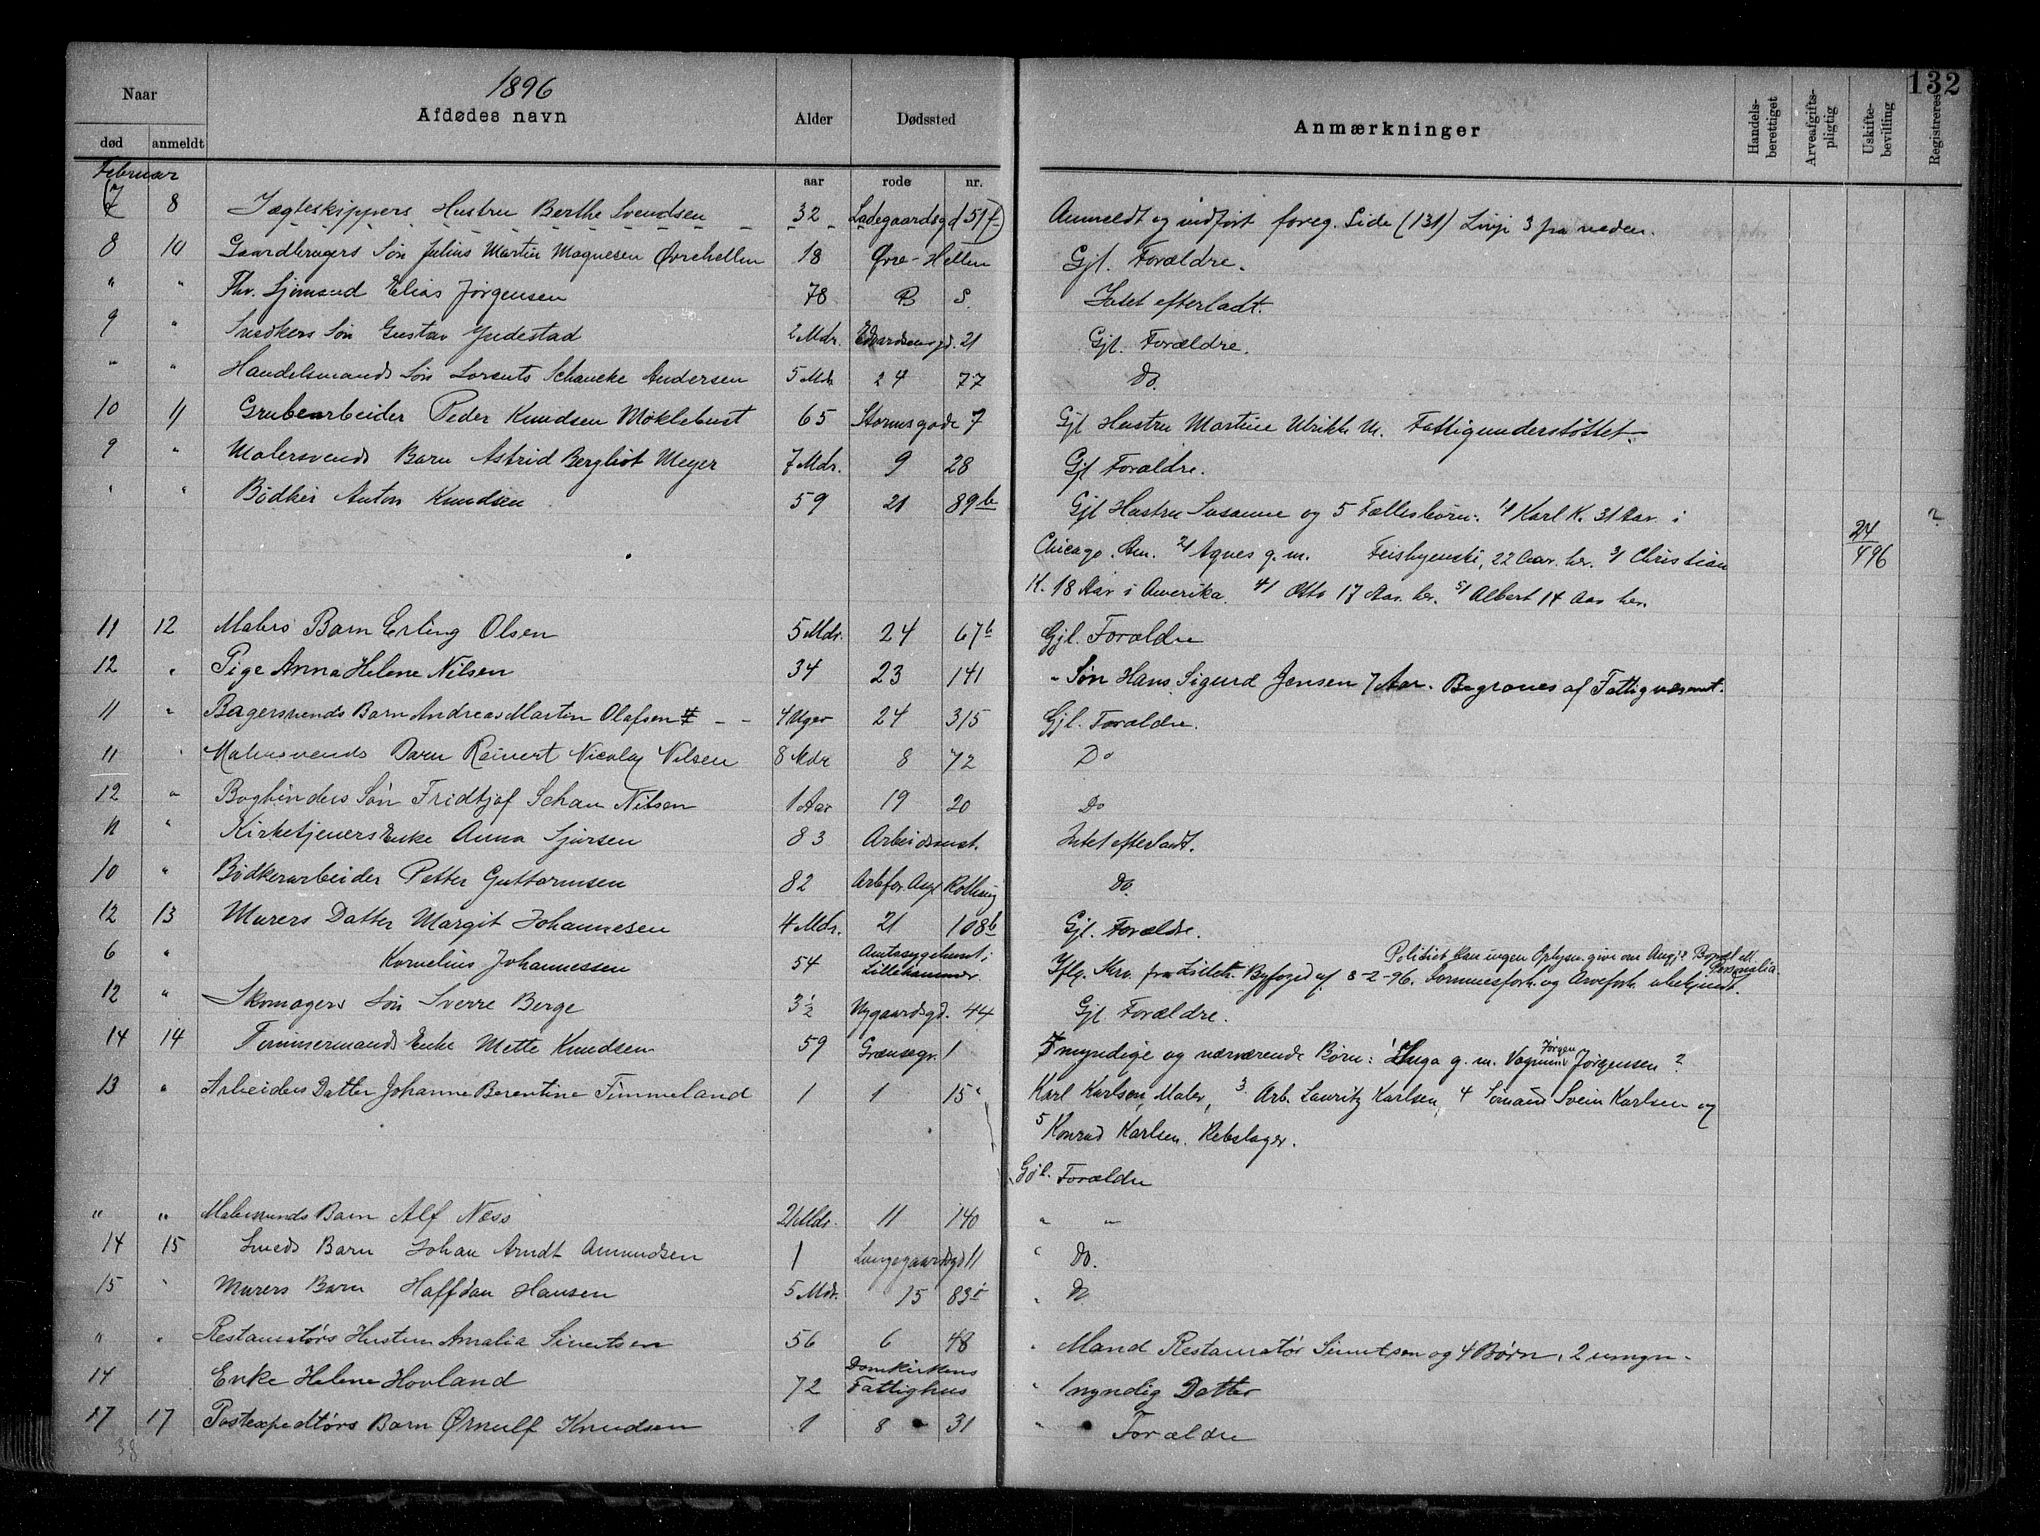 132
1896
Naar
død anmeldt
Afdødes navn
Alder
aar
Dødssted
rode nr.
Anmærkninger
Handels-berettiget
Arveafgifts-pligtig
Uskifte-bevilling
Registreres
Februar
(7 8 Jægteskippers Hustru Berthe Svendsen 32 Ladegaardsgd 51 f) Anmeldt og indført foreg. Side (131) Linje 3 fra neden.
8 10 Gaardbrugers Søn Julius Martin Magnesen Øvrehellen 18 Øvre-Hellen Gjl. Forældre.
" " Fhv. Sjømand Elias Jørgensen 78 B S. Intet efterladt.
9 " Snedkers Søn Gustav Indestad 2 Mdr. Edvardsensgd. 21 Gjl. Forældre.
" " Handelsmands Søn Lorents Schancke Andersen 5 Mdr 24 77 Do.
10 11 Grubearbeider Peder Knudsen Møklebust 65 Stormsgade 7 Gjl Hustru Martine Ulrikke M. Fattigunderstøttet.
9 " Malersvends Barn Astrid Bergliot Meyer 7 Mdr. 9 28 Gjl Forældre.
" " Bødker Anton Knudsen 59 21 89 b Gjl Hustru Susanne og 5 Fællesbørn: 1/ Karl K. 31 Aar i ?
Chicago. Am. 2/ Agnes g. m. Feishyenski, 22 Aar. her. 3/ Christian 24/4 96
K. 18 Aar i Amerika. 4/ Otto 17 Aar. her. 5/ Albert 14 Aar her.
11 12 Malers Barn Erling Olsen 5 Mdr. 24 67 b Gjl. Forældre
12 " Pige Anna Helene Nilsen 34 23 141 " Søn Hans Sigurd Jensen 7 Aar. Begraves af Fattigvæsenet.
11 " Bagersvends Barn Andreas Martin Olafsen 4 Uger 24 315 Gjl. Forældre.
11 " Malersvends Barn Reinert Nicolay Nilsen 8 Mdr 8 72 Do
12 " Bogbinders Søn Fridtjof Schau Nilsen 1 Aar 19 20 Do
11 " Kirketjeners Enke Anna Sjursen 83 Arbeidsanst. Intet efterladt.
10 " Bødkerarbeider Petter Guttormsen 82 Arbfor. Asyl Rothaug Do.
12 13 Murers Datter Margit Johannesen 4 Mdr. 21 108 b Gjl. Forældre.
6 " Kornelius Johannessen 54 Amtssygehuset i Lillehammer Politiet kan ingen Oplysn. give om Angj? Bopæl ell. Personalia.
Iflg. Skr. fra Lilleh. Byfoged af 8-2-96. Formuesforh. og Arveforh. ubekjendt.
12 " Skomagers Søn Sverre Berge 3½ Nygaardsgd. 44 Gjl Forældre.
14 14 Tømmermands Enke Mette Knudsen 59 Grænsegr. 1 5 myndige og nærværende Børn: 1 Inga g. m. Vognmd Jørgen Jørgensen 2
13 " Arbeiders Datter Johanne Berentine Timmeland 1 1 15 Karl Karlsen, Maler, 3 Arb. Lauritz Karlsen, 4 Sømand Svein Karlsen og
5 Konrad Karlsen. Rebslager.
Gjl. Forældre
" " Malersvends Barn Alf Næss 21 Mdr. 11 140 " "
14 15 Smeds Barn Johan Arndt Amundsen 1 Lungegaardsgd 11 " Do.
15 " Murers Barn Halfdan Hansen 5 Mdr. 15 83 " Do
" " Restauratørs Hustru Amalia Sivertsen 56 6 48 " Mand Restauratør Sivertsen og 4 Børn, 2 umyn.
14 Enke Helene Hovland 72 Domkirkens Fattighus " 1 myndig Datter
17 17 Postexpeditørs Barn Ørnulf Knudsen 1 8 31 " Forældre
38